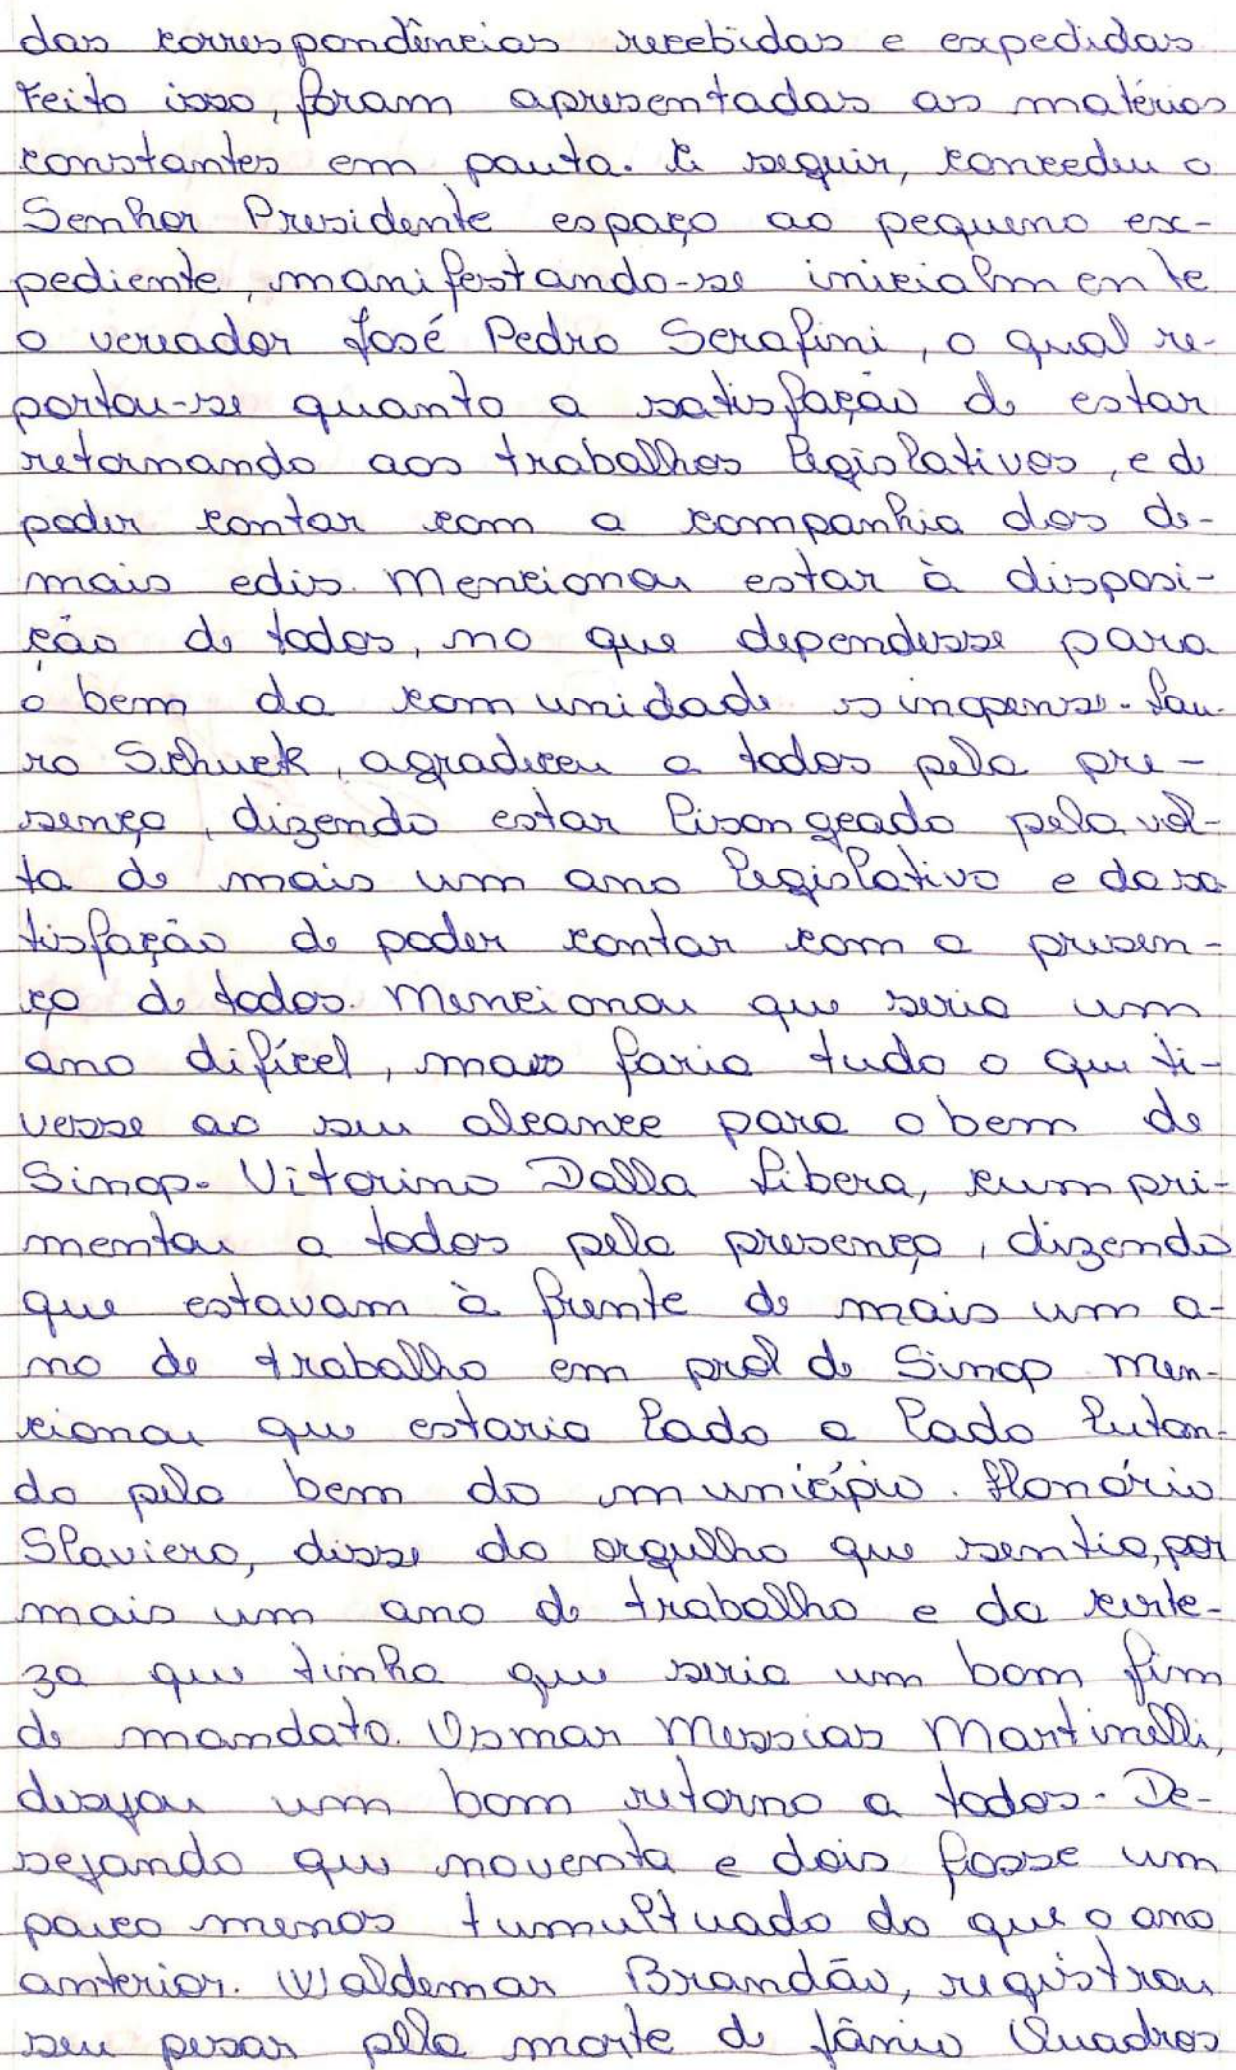 das correspondências recebidas e expedidas
Feito isso, foram apresentadas as matérias
constantes em pauta. A seguir, concedeu o
Senhor Presidente espaço ao pequeno ex-
pediente, manifestando-se inicialmente
o vereador José Pedro Serafini, o qual re-
portou-se quanto a satisfação de estar
retornando aos trabalhos legislativos, e de
poder contar com a companhia dos de-
mais edis. Mencionou estar à disposi-
ção de todos, no que dependesse para
o bem da comunidade sinopense. Lau-
ro Schuck, agradeceu a todos pela pre-
sença, dizendo estar lisongeado pela vol-
ta de mais um ano legislativo e da sa
tisfação de poder contar com a presen-
ça de todos. Mencionou que seria um
ano difícel, mas faria tudo o que ti-
vesse ao seu alcance para o bem de
Sinop. Vitorino Dalla Libera, cumpri-
mentou a todos pela presença, dizendo
que estavam à frente de mais um a-
no de trabalho em prol de Sinop Men-
cionou que estaria lado a lado lutan-
do pelo bem do município. Honório
Slaviero, disse do orgulho que sentia, por
mais um ano de trabalho e da certe-
za que tinha que seria um bom fim
de mandato. Osmar Messias Martinelli,
desejou um bom retorno a todos. De-
sejando que noventa e dois fosse um
pouco menos tumultuado do que o ano
anterior. Waldemar Brandão, registrou
seu pesar pela morte de Jânio Quadros